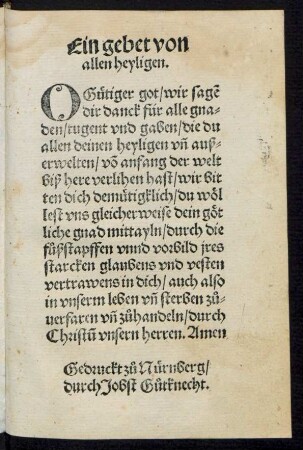 Ein gebet von
allen heyligen.
O Gütiger got/wir sagē
dir danck für alle gna⸗
den/tugent vnd gaben/die du
allen deinen heyligen vn̄ auß⸗
erwelten/vō anfang der welt
biß here verlihen hast/wir bit
ten dich demütigklich/du wöl
lest vns gleicherweise dein göt
liche gnad mittayln/durch die
fůßstapffen vnnd vorbild jres
starcken glaubens vnd vesten
vertrawens in dich/auch also
in vnserm leben vn̄ sterben zů⸗
uerfaren vn̄ zůhandeln/durch
Christū vnsern herren. Amen
Gedruckt zů Nürnberg/
durch Jobst Gůtknecht.